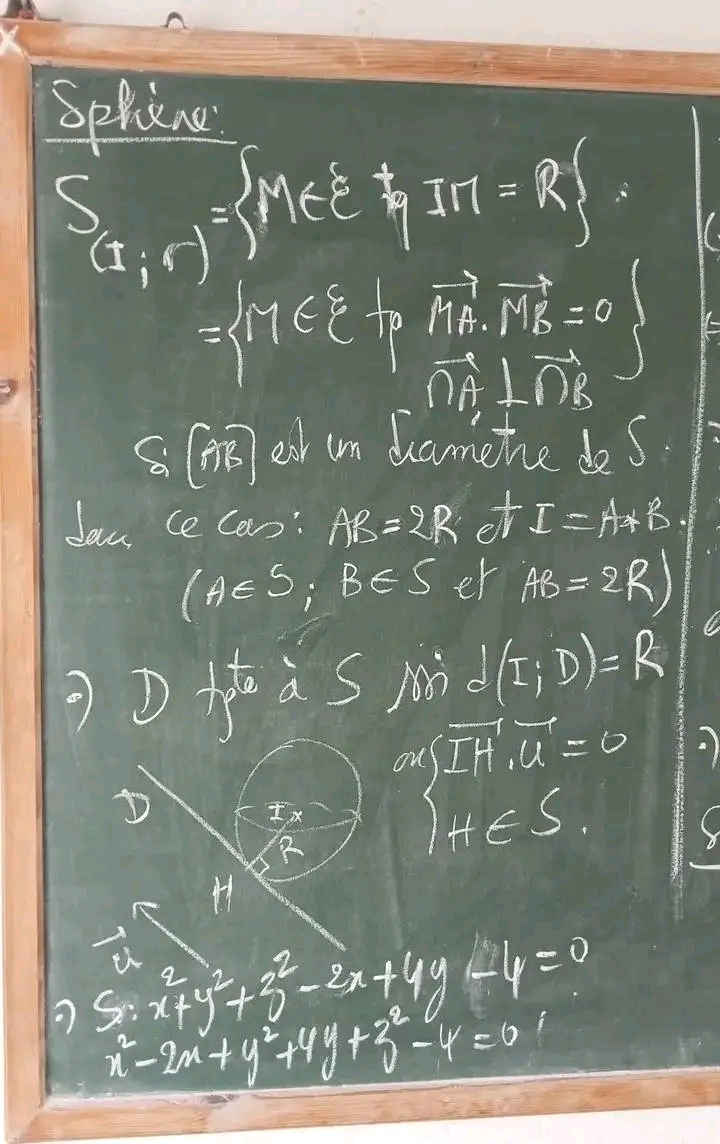 Sphère:
S(I; r) = {M∈ξ tq IM = R}.
= {M∈ξ tq MA⃗.MB⃗ = 0}
MA⃗ ⊥ MB⃗
Si [AB] est un diamètre de S.
dans ce cas: AB=2R et I=A*B.
(A∈S; B∈S et AB=2R)
•) D tgte à S ssi d(I;D)=R
ou {IH⃗.u⃗ = 0
H∈S.
D
I x
R
H
u⃗
•) S: x²+y²+z²-2x+4y-4=0
x²-2x+y²+4y+z²-4=0